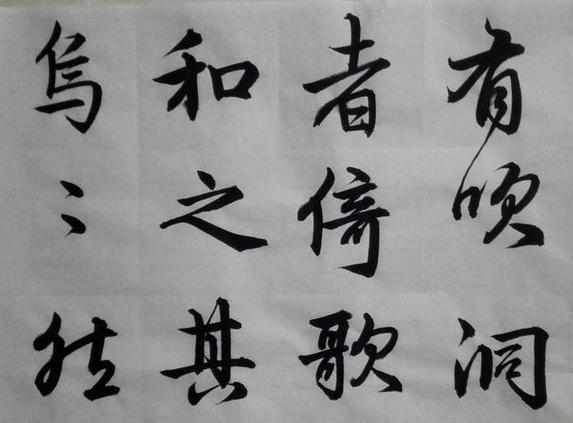 有吹洞
者倚歌
和之其
嗚〻然